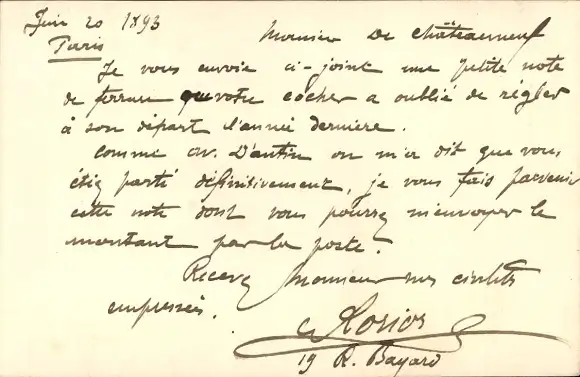 Juin 20 1893
Paris
Monsieur De Châteauneuf
Je vous envoie ci-joint une petite note
de ferrure que votre cocher a oublié de régler
à son départ l'année dernière.
Comme av. D'antin on m'a dit que vous
étiez parti définitivement, je vous fais parvenir
cette note dont vous pourrez m'envoyer le
montant par la poste.
Recevez Monsieur mes civilités
empressées.
19 R. Bayard